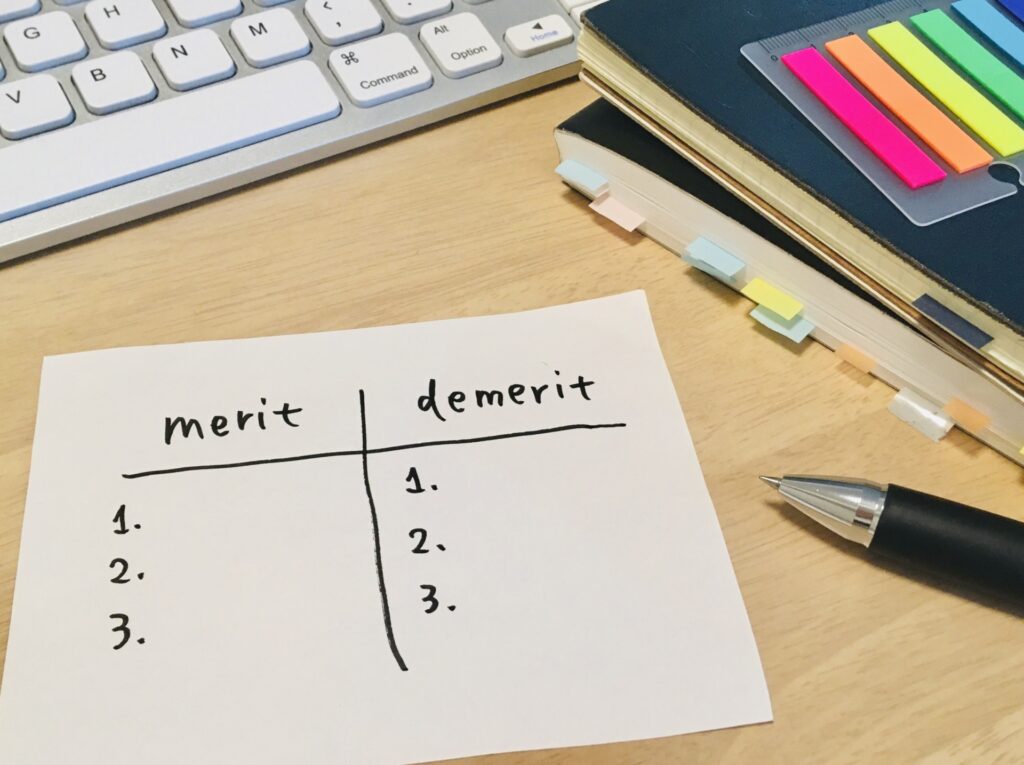 G
H
<
,
V
B
N
M
⌘
Command
Alt
Option
◀
Home
0
merit
demerit
1.
2.
3.
1.
2.
3.